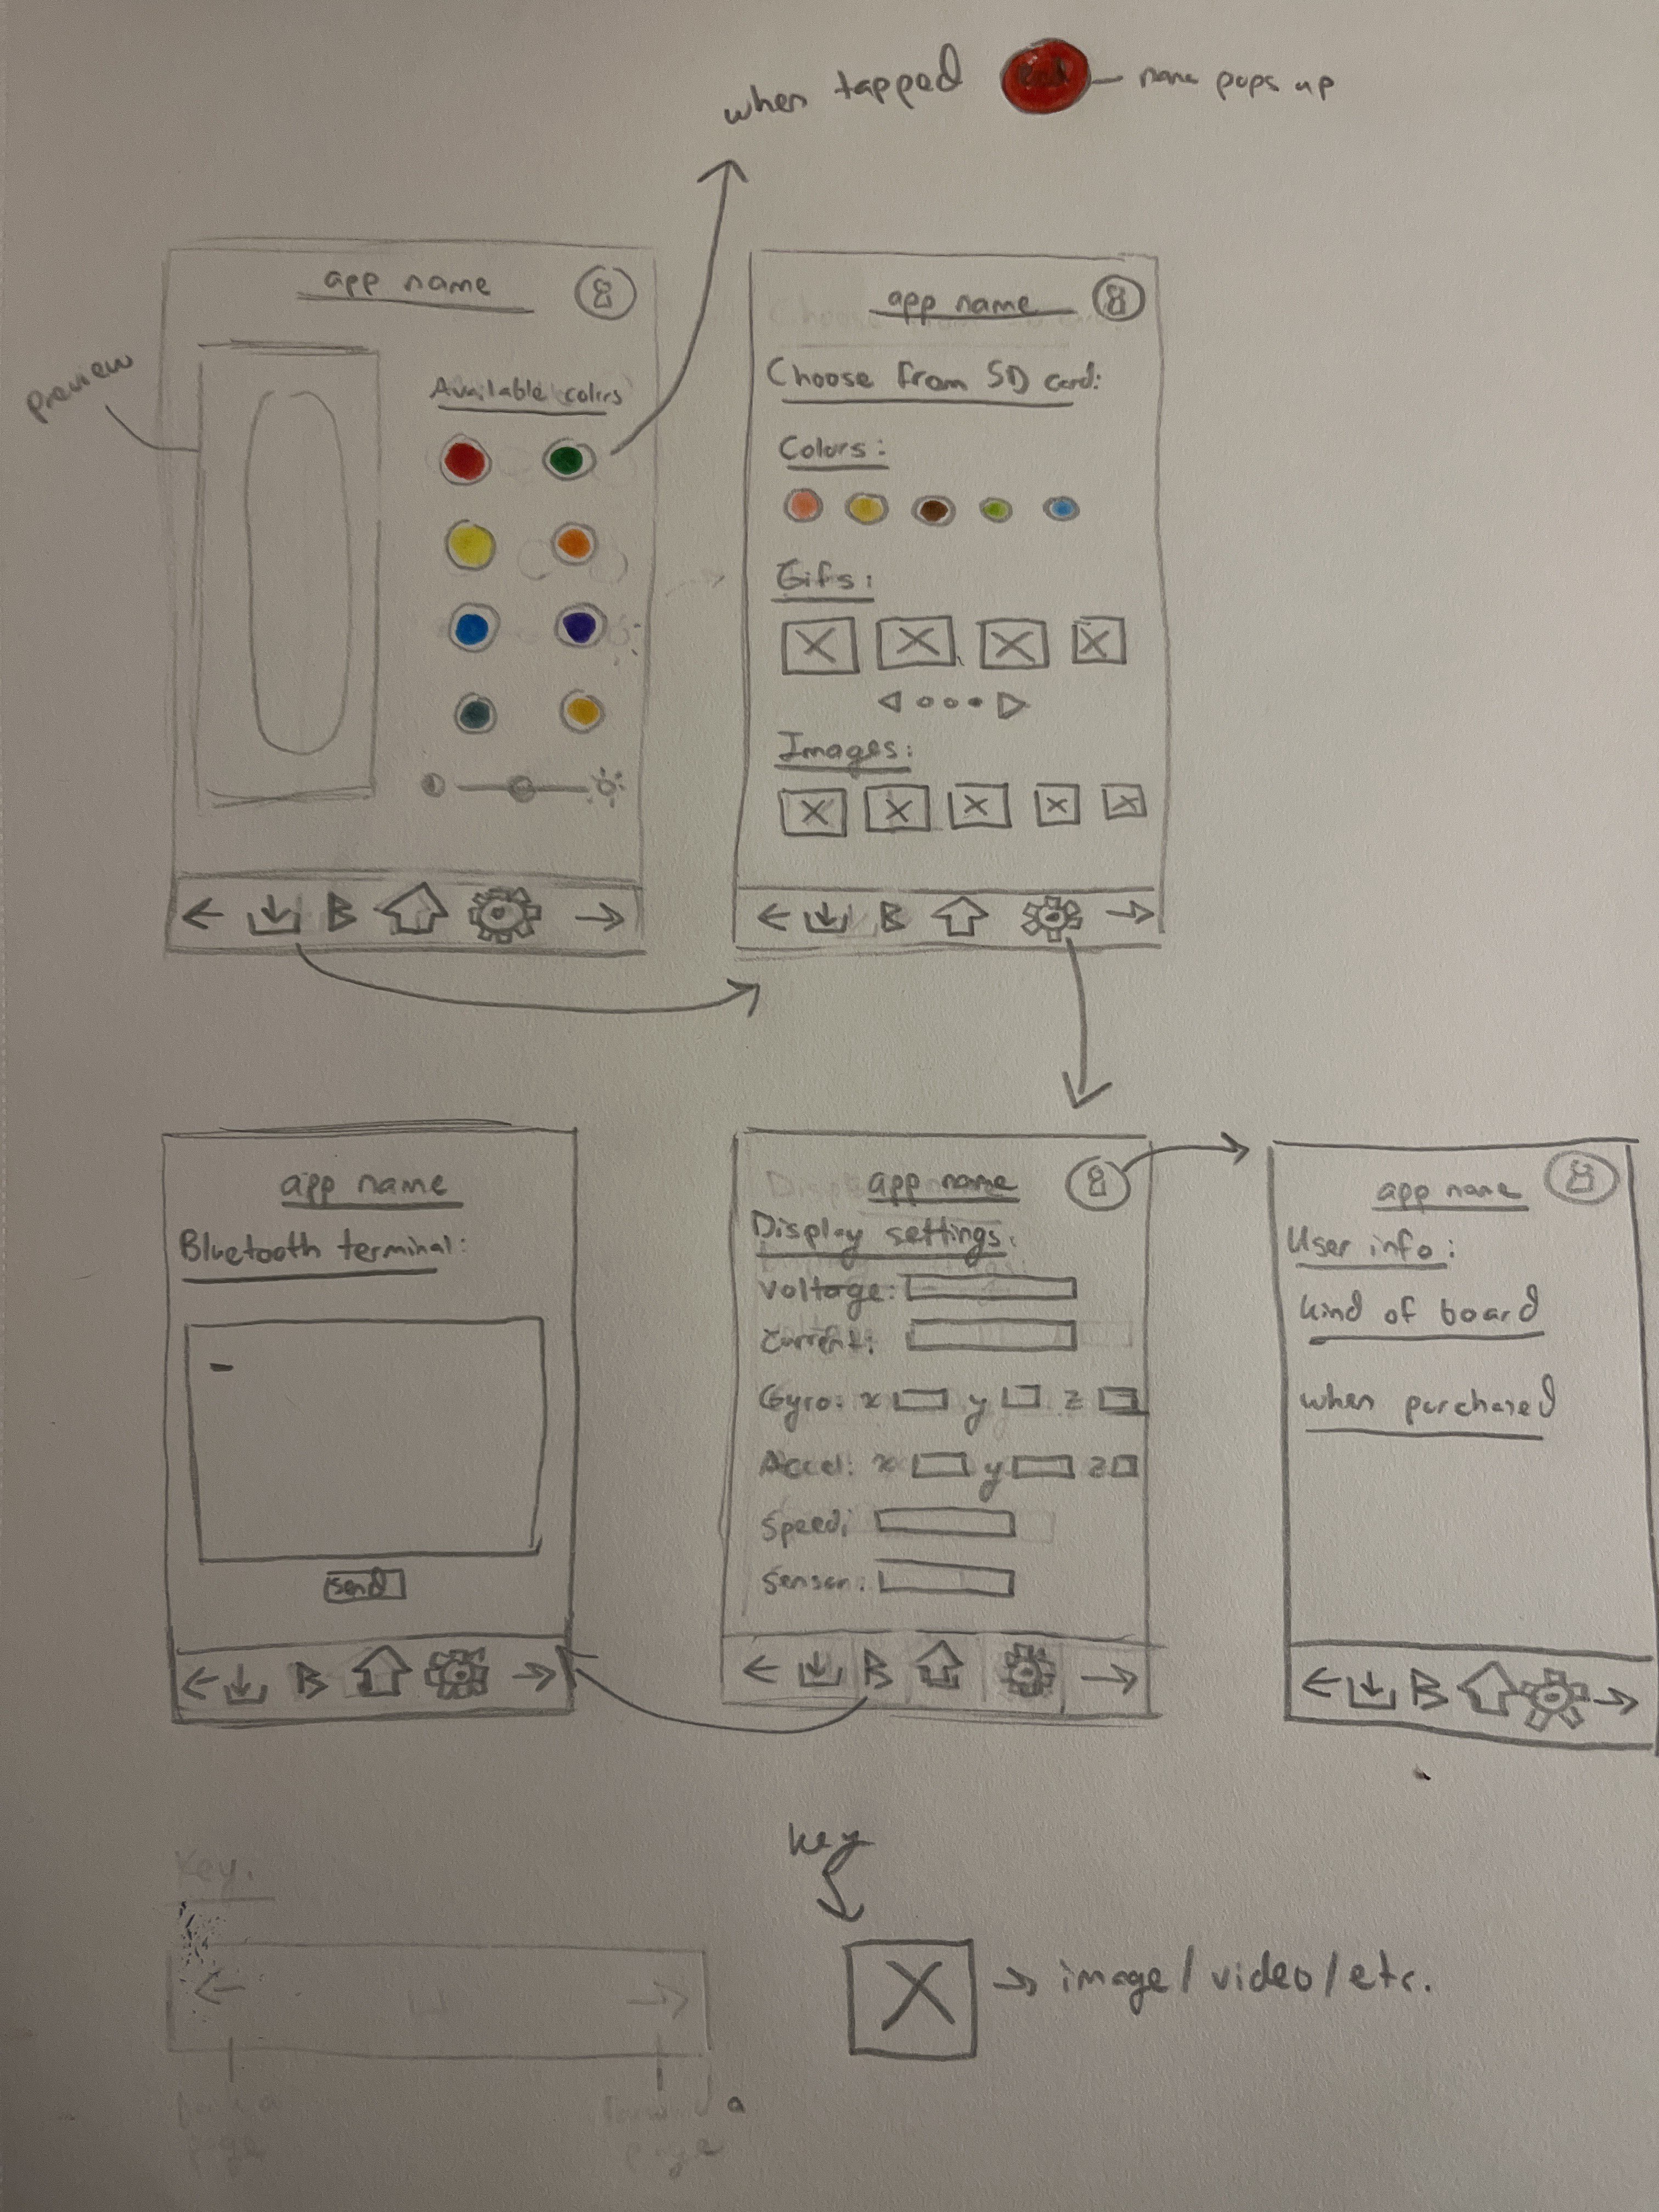 when tapped
Red
name pops up
preview
app name
Available colors
B
app name
Choose from SD card:
Colors:
Gifs:
Images:
B
app name
Bluetooth terminal:
send
B
app name
Display settings:
Voltage:
Current:
Gyro: x y z
Accel: x y z
Speed:
Sensor:
B
app name
User info:
kind of board
when purchased
B
Key.
page
page
key
X → image/video/etc.